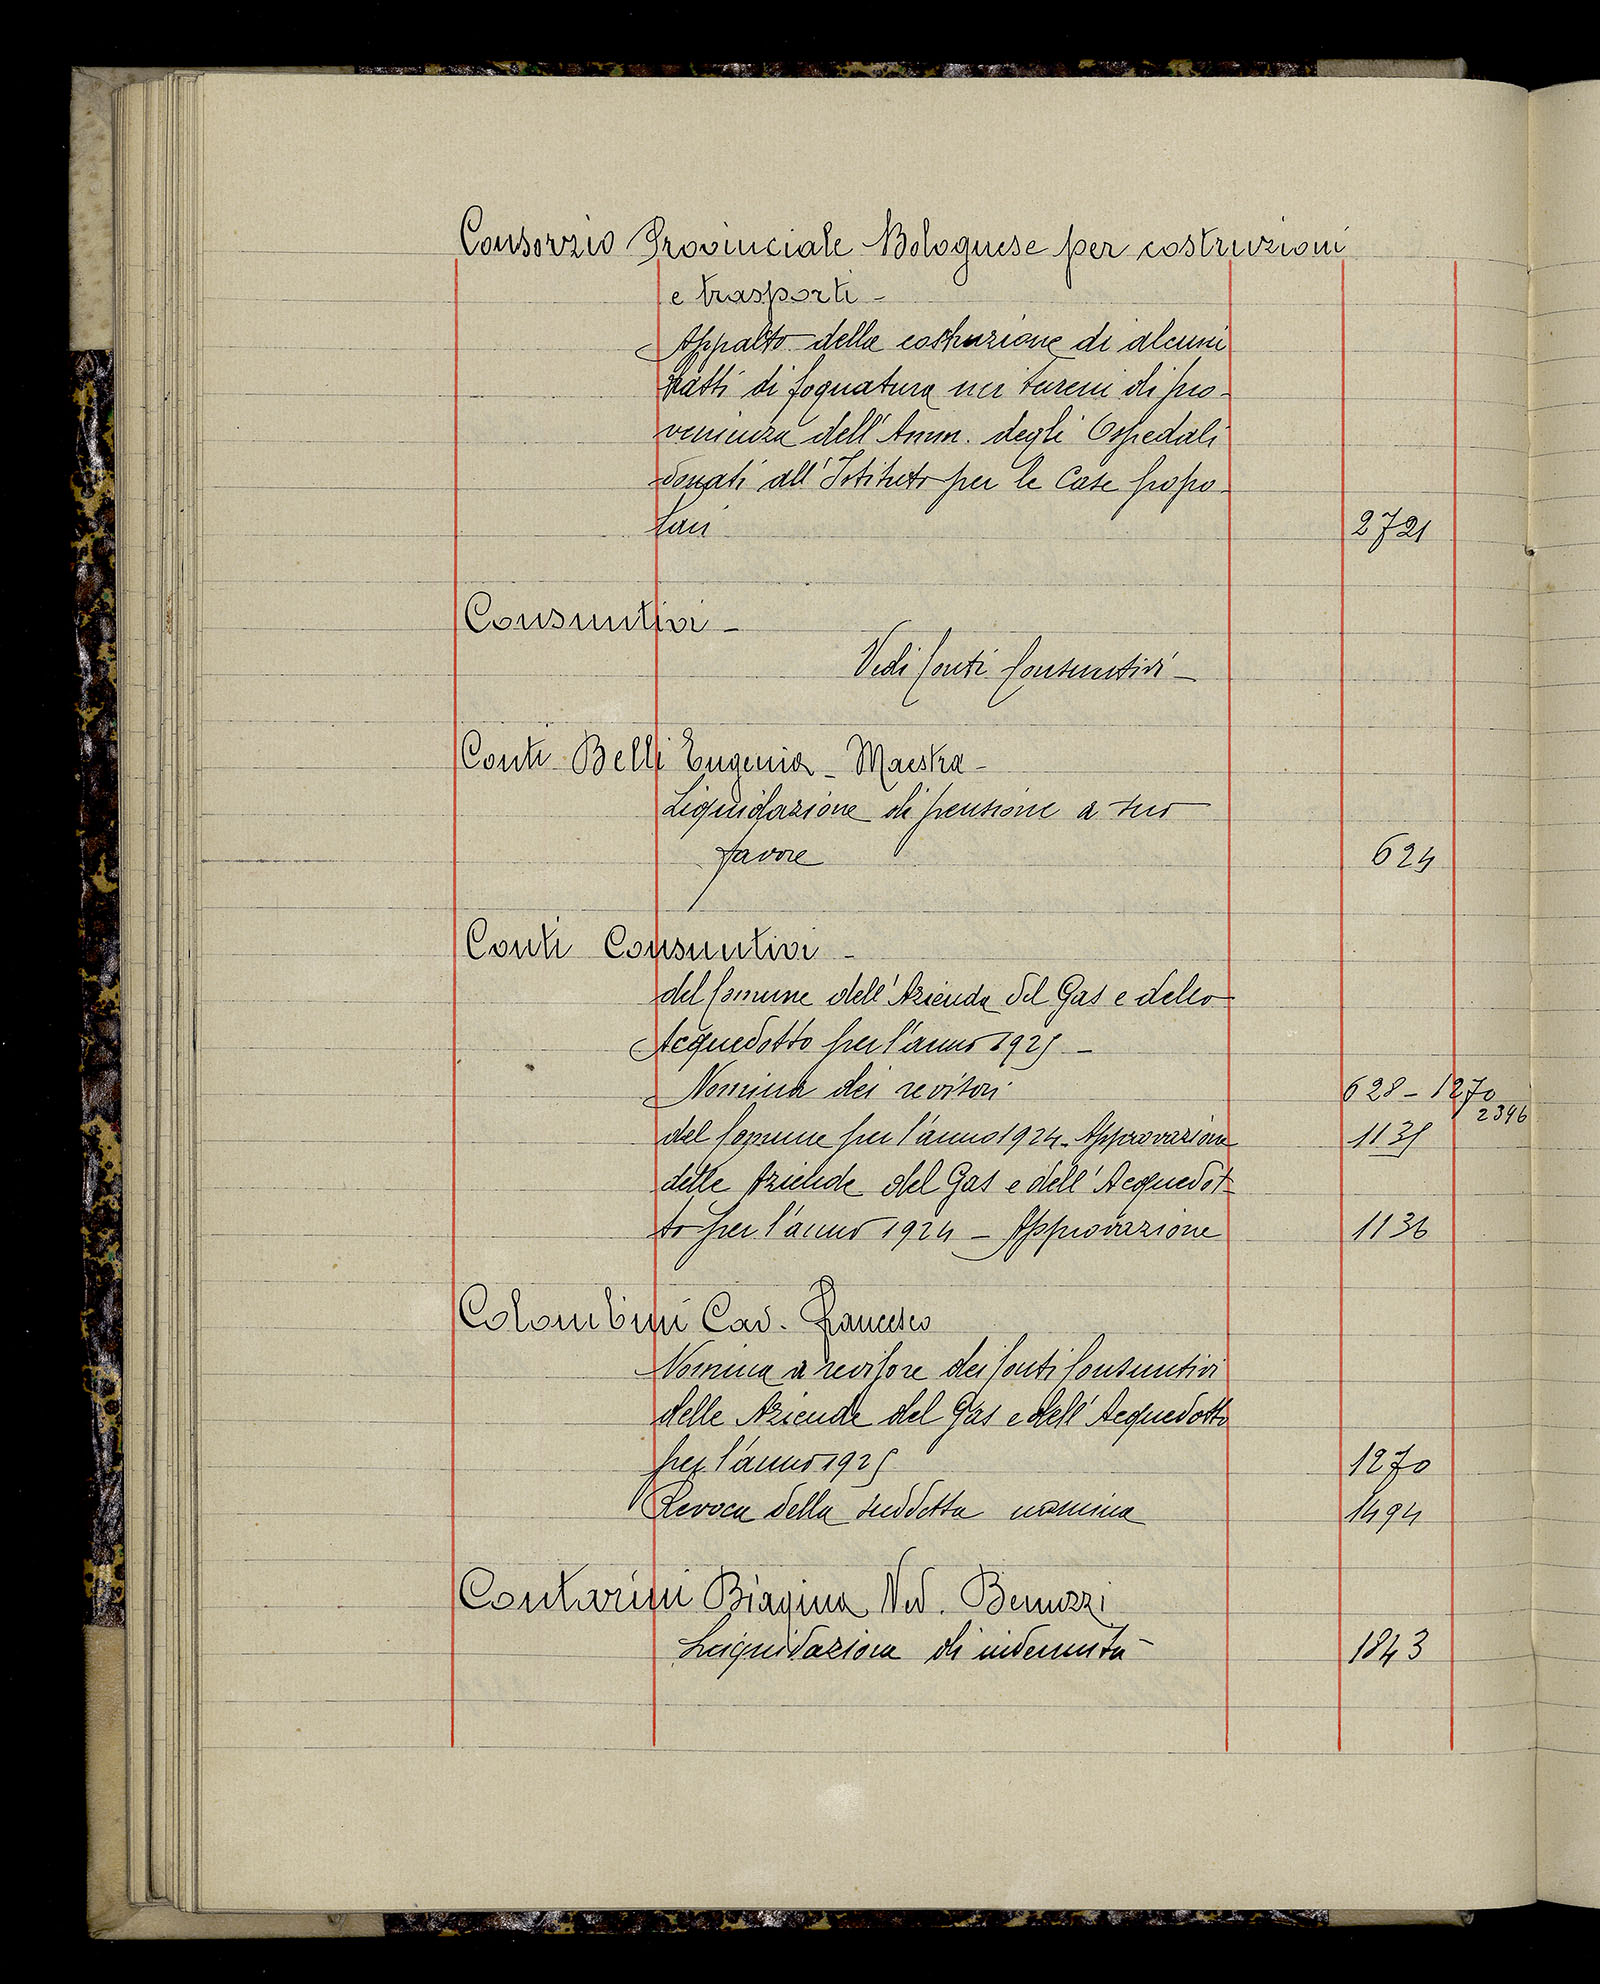 Consorzio Provinciale Bolognese per costruzioni
e trasporti -
Appalto della costruzione di alcuni
tratti di fognatura nei terreni di pro-
venienza dell'Amm. degli Ospedali
donati all'Istituto per le Case popo-
lari 2721
Consuntivi -
Vedi Conti Consuntivi -
Conti Belli Eugenia - Maestra -
Liquidazione di pensione a suo
favore 624
Conti Consuntivi -
del Comune dell'Azienda del Gas e dello
Acquedotto per l'anno 1925 -
Nomina dei revisori 628 - 1270
2396
del Comune per l'anno 1924 - Approvazione 1135
delle Aziende del Gas e dell'Acquedot-
to per l'anno 1924 - Approvazione 1136
Colombini Cav. Francesco
Nomina a revisore dei Conti Consuntivi
delle Aziende del Gas e dell'Acquedotto
per l'anno 1925 1270
Revoca della suddetta nomina 1494
Contarini Biagina Ved. Benuzzi
Liquidazione di indennità 1843